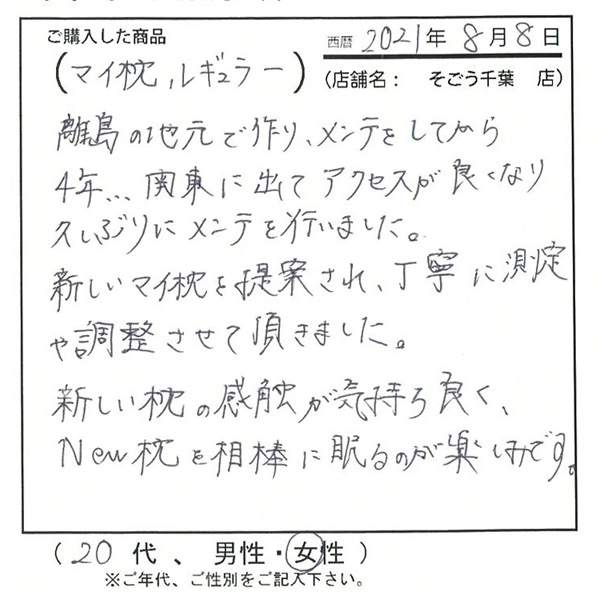 ご購入した商品
西暦 2021年 8月 8日
(マイ枕,レギュラー)
(店舗名： そごう千葉 店)
離島の地元で作り、メンテをしてから
4年... 関東に出てアクセスが良くなり
久しぶりにメンテを行いました。
新しいマイ枕を提案され、丁寧に測定
や調整させて頂きました。
新しい枕の感触が気持ち良く、
New枕を相棒に眠るのが楽しみです。
(20 代 、 男性・女性)
※ご年代、ご性別をご記入下さい。